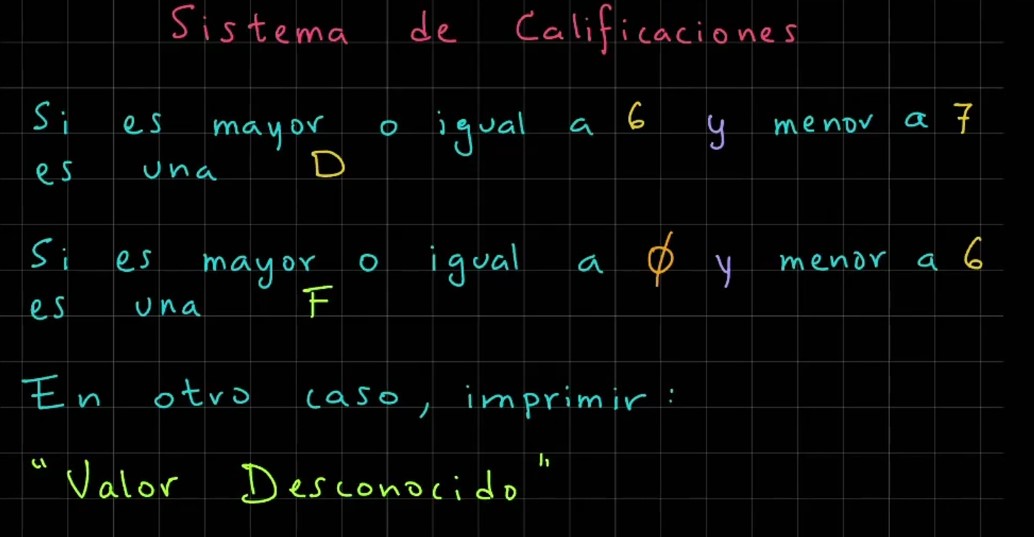 Sistema de Calificaciones
Si es mayor o igual a 6 y menor a 7
es una D
Si es mayor o igual a 0 y menor a 6
es una F
En otro caso, imprimir:
"Valor Desconocido"